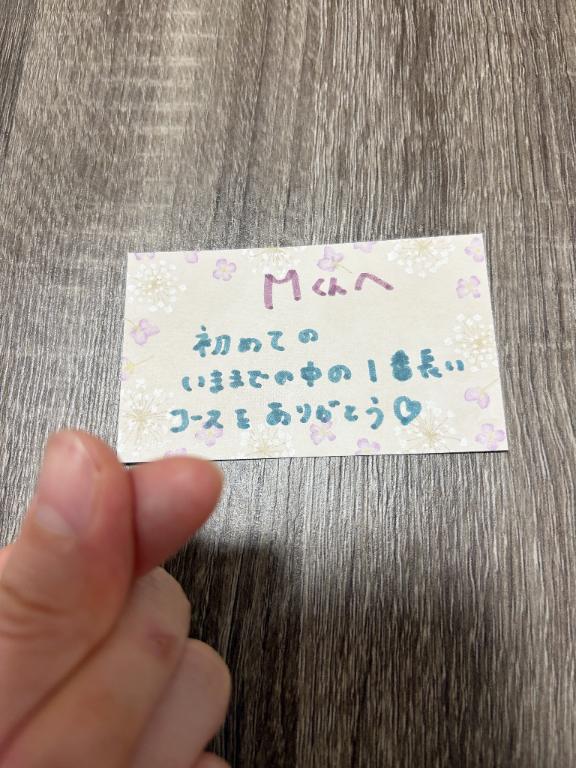 Mくんへ
初めての
いままでの中の1番長い
コースをありがとう♡